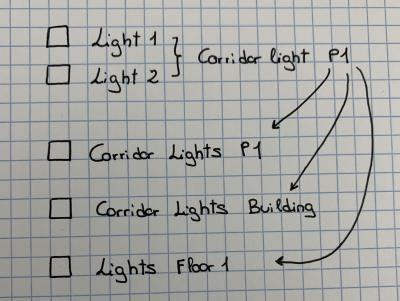 Light 1
Light 2 } Corridor light P1
Corridor Lights P1
Corridor Lights Building
Lights Floor 1